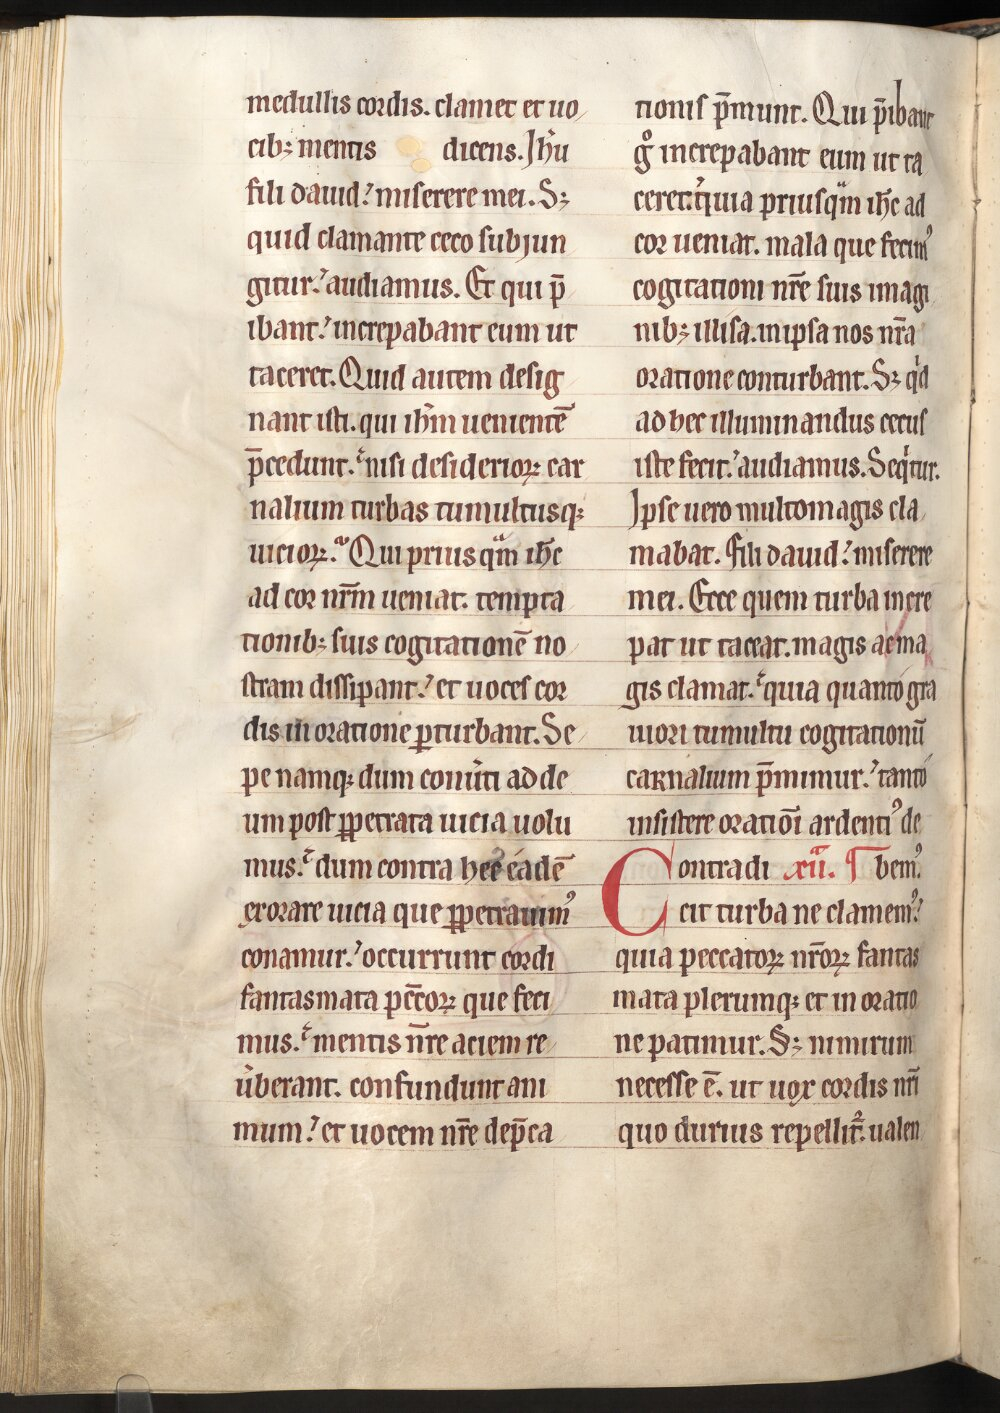 medullis cordis. clamet et uo
cib; mentis dicens. Jh̄u
fili dauid? miserere mei. S;
quid clamante ceco subjun
gitur? audiamus. Et qui p̄
ibant? increpabant eum ut
taceret. Quid autem desig
nant isti. qui ih̄m uenientē
p̄cedunt. nisi desiderioꝝ car
nalium turbas tumultusqꝫ
uicioꝝ. Qui prius qͣm ih̄c
ad cor nr̄m ueniat. tempta
tionib; suis cogitationē no
stram dissipant? et uoces cor
dis in oratione ꝑturbant. Se
pe namqꝫ dum conu̓ti ad de
um post ꝑpetrata uicia uolu
mus. dum contra hec eadē
exorare uicia que ꝑpetrauimꝰ
conamur? occurrunt cordi
fantasmata pec̄coꝝ que feci
mus. mentis nr̄e aciem re
u̓berant. confundunt ani
mum? et uocem nr̄e dep̄ca
tionis p̄munt. Qui p̄ibant
gͦ increpabant eum ut ta
ceret. quia priusqͣm ih̄c ad
cor ueniat. mala que fecimꝰ
cogitationi nr̄e suis imagi
nib; illisa. in ipsa nos nr̄a
oratione conturbant. S; qͥd
ad hec illuminandus cecus
iste fecit? audiamus. Seqͥtur.
Jpse uero multo magis cla
mabat. Fili dauid? miserere
mei. Ecce quem turba incre
pat ut taceat. magis ac ma
gis clamat. quia quanto gra
uiori tumultu cogitationū
carnalium p̄mimur? tanto
insistere orationi ardentiꝰ de
Contradi xii. ¶ bemꝰ.
cit turba ne clamemꝰ?
quia peccatoꝝ nr̄oꝝ fantas
mata plerumqꝫ et in oratio
ne patimur. S; nimirum
necesse ē. ut uox cordis nr̄i
quo durius repellit᷑. ualen